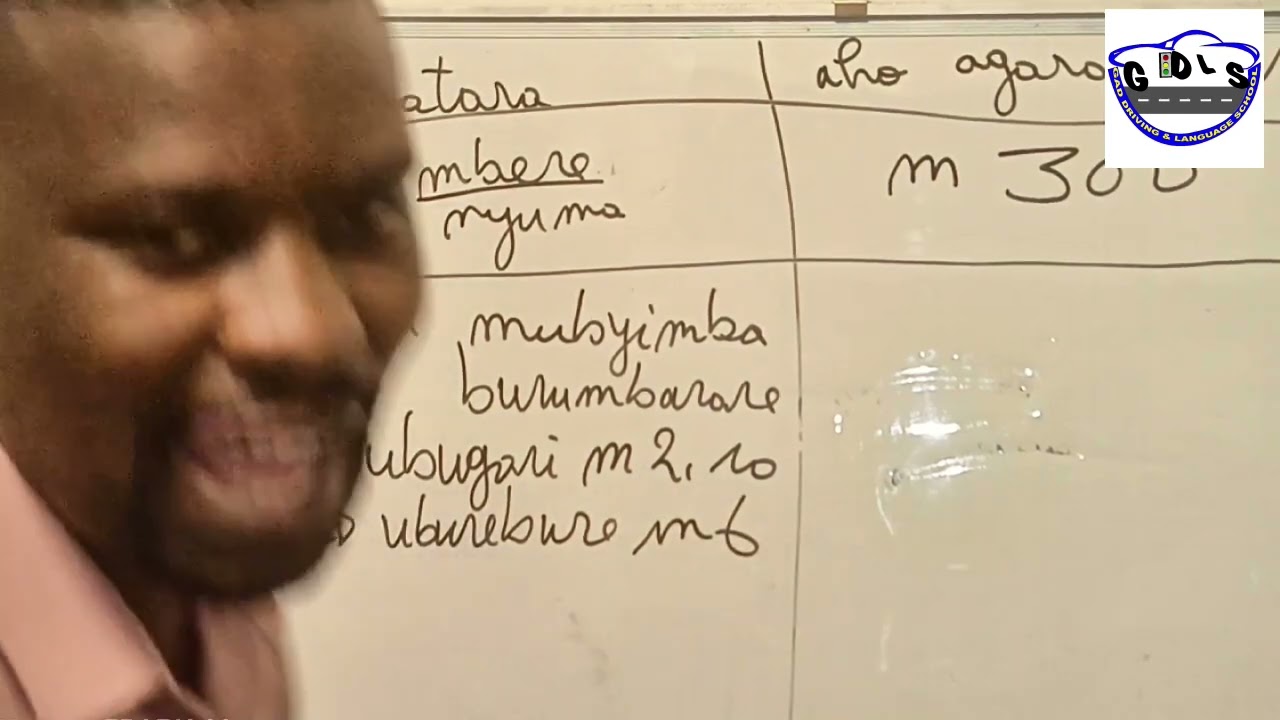 atara
aho agaro
mbere
nyuma
m 300
mubyimba
burumbarare
ubugari m 2, 10
uburebure m 6
G DLS
GAD DRIVING & LANGUAGE SCHOOL